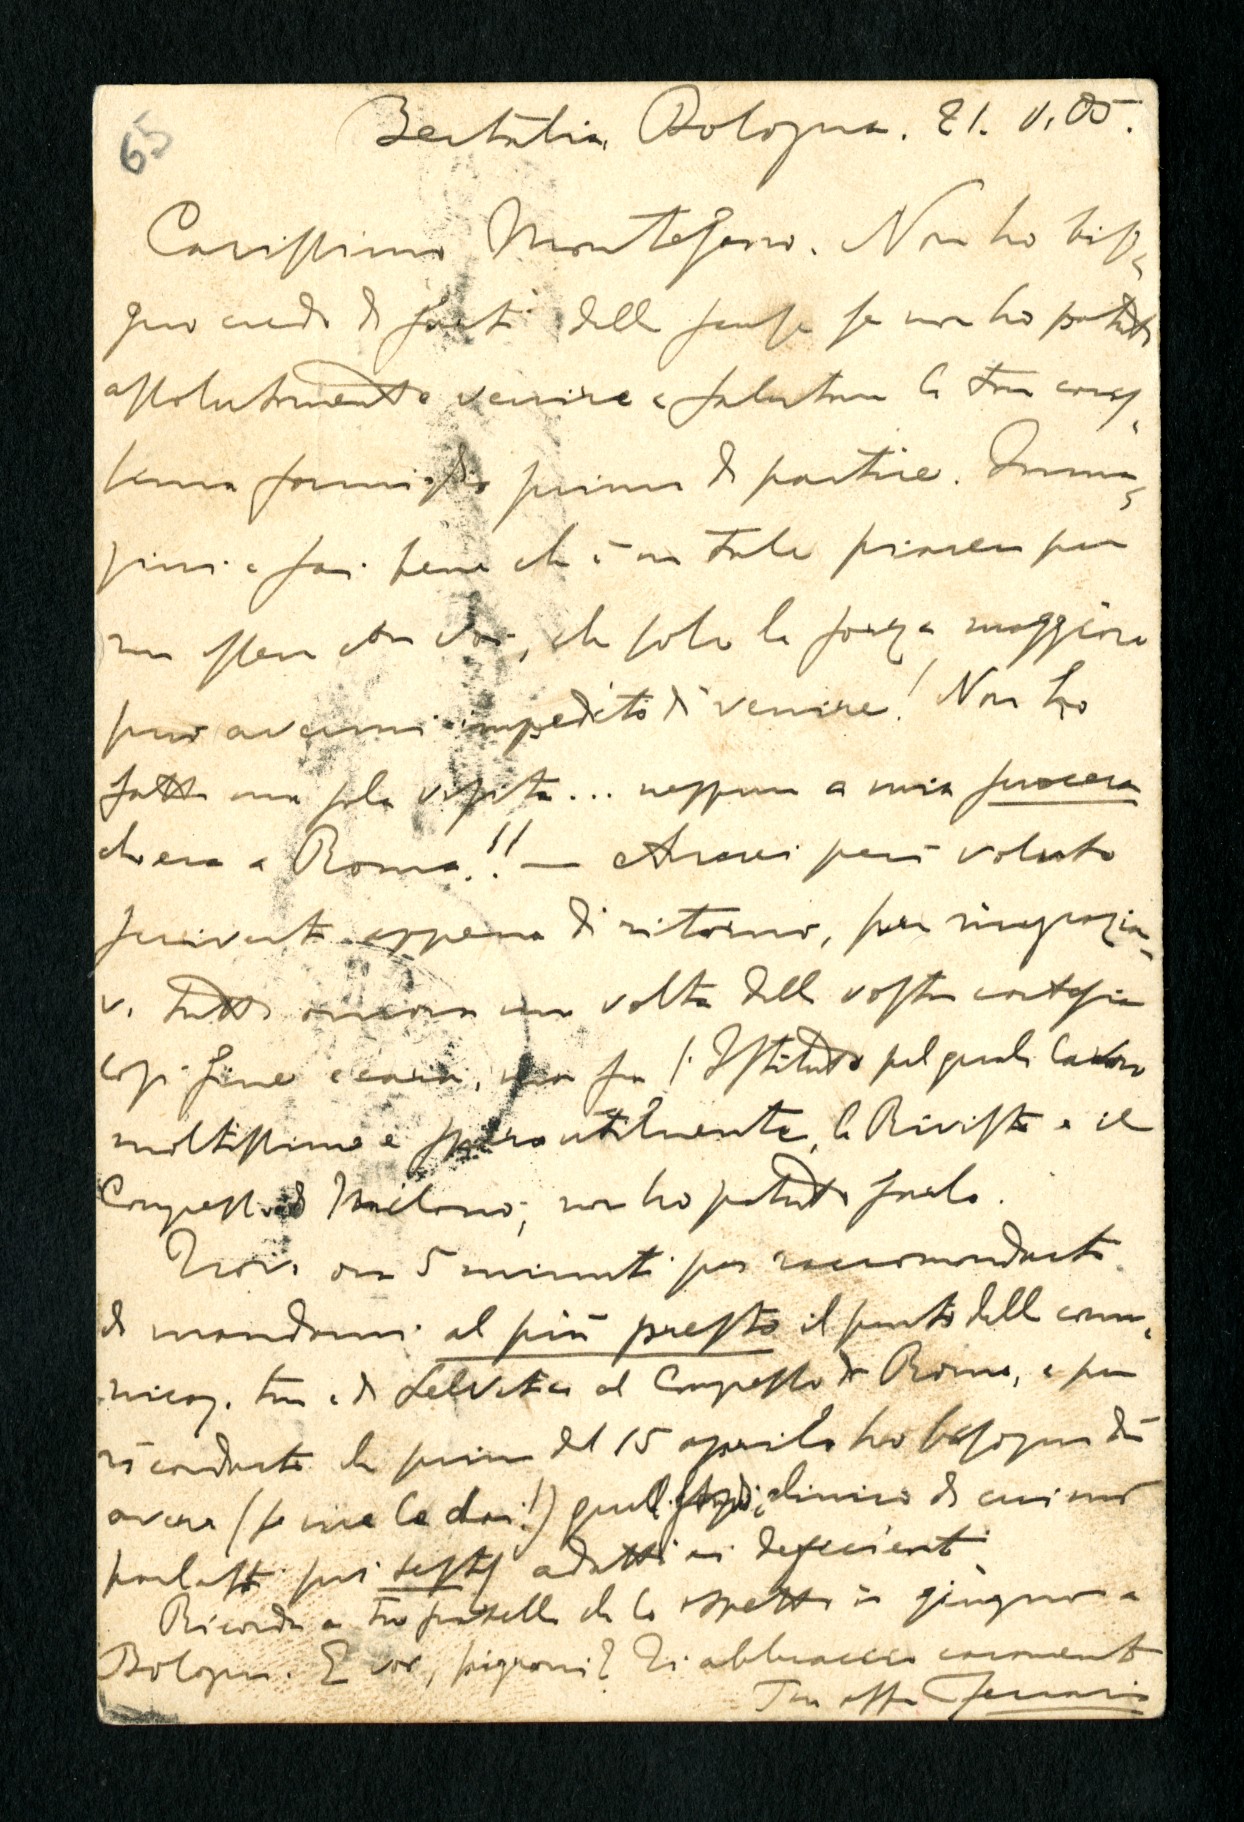 65
Bertalia, Bologna. 21. V. 05.
Carissimo Montesano. Non ho biso-
gno credo di farti delle scuse se non ho potuto
assolutamente venire a salutare la tua caris-
sima famiglia prima di partire. Imma-
gini e sai bene che è un tale piacere per
me essere con voi, che solo la forza maggiore
può avermi impedito di venire! Non ho
fatto una sola visita... neppure a mia suocera
che era a Roma!! — Avrei però voluto
scriverti appena di ritorno, per ringrazia-
vi tutti ancora una volta della vostra cortesia
così fine e cara, ma fra l'Istituto pel quale lavoro
moltissimo e spero utilmente, la Rivista e il
Congresso di Milano, non ho potuto farlo.
Trovo ora 5 minuti per raccomandarti
di mandarmi al più presto il sunto delle comu-
nicaz. tua e di Selvatico al Congresso di Roma, e per
ricordarti che prima del 15 aprile ho bisogno di
avere (se me le dai!) quell' clinico di cui mi
parlasti pei tests adatti ai deficienti.
Ricorda a tuo fratello che lo aspetto in giugno a
Bologna. E voi, pigroni? Ti abbraccio caramente
Tuo aff. Ferrari